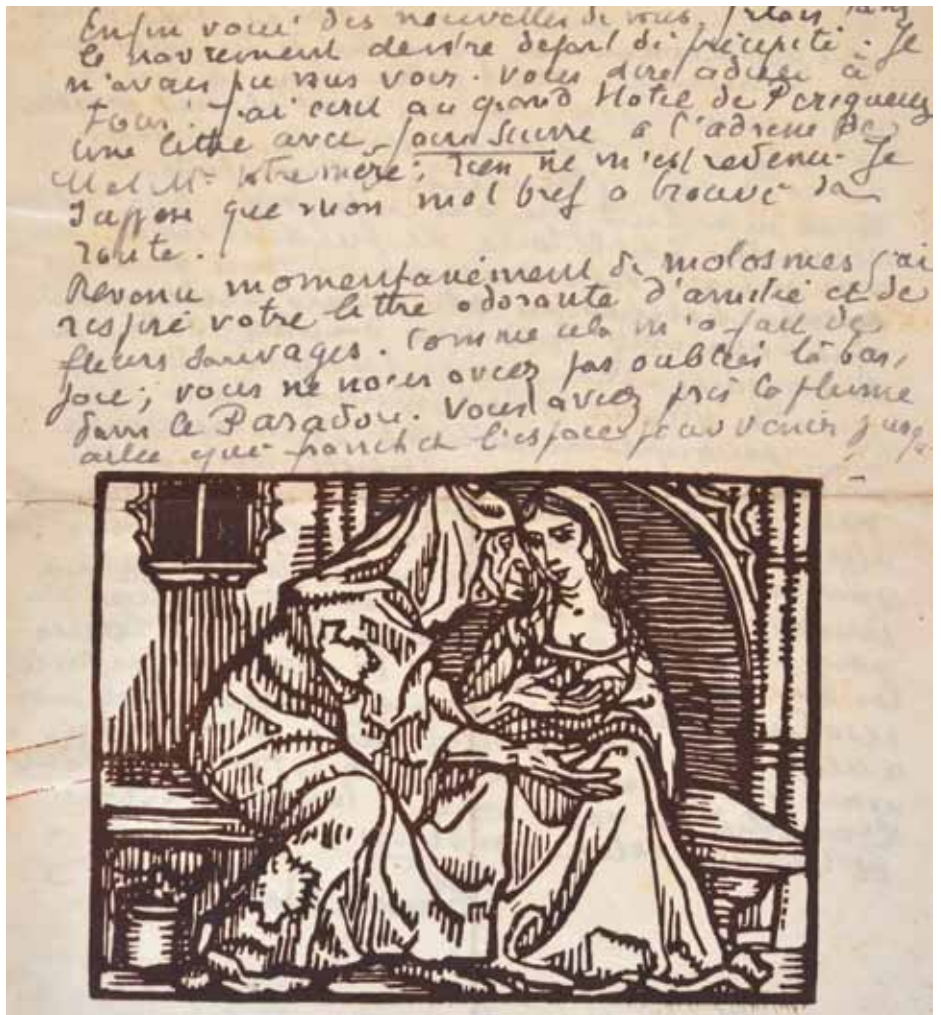 Enfin voici des nouvelles de vous. J'étais dans
le navrement de votre départ si précipité. Je
n'avais pu vous voir. vous dire adieu à
Tous! J'ai écrit au grand Hotel de Perigueux
une lettre avec faire suivre à l'adresse de
M et Me votre mère; rien ne m'est revenu. Je
suppose que mon mot bref a trouvé sa
route.
Revenu momentanément de molosmes j'ai
respiré votre lettre odorante d'amitié et de
fleurs sauvages. Comme cela m'a fait de
joie; vous ne nous avez pas oubliés là bas,
dans le Paradou. Vous avez pris la plume
ailée qui franchit l'espace pour venir jusqu'